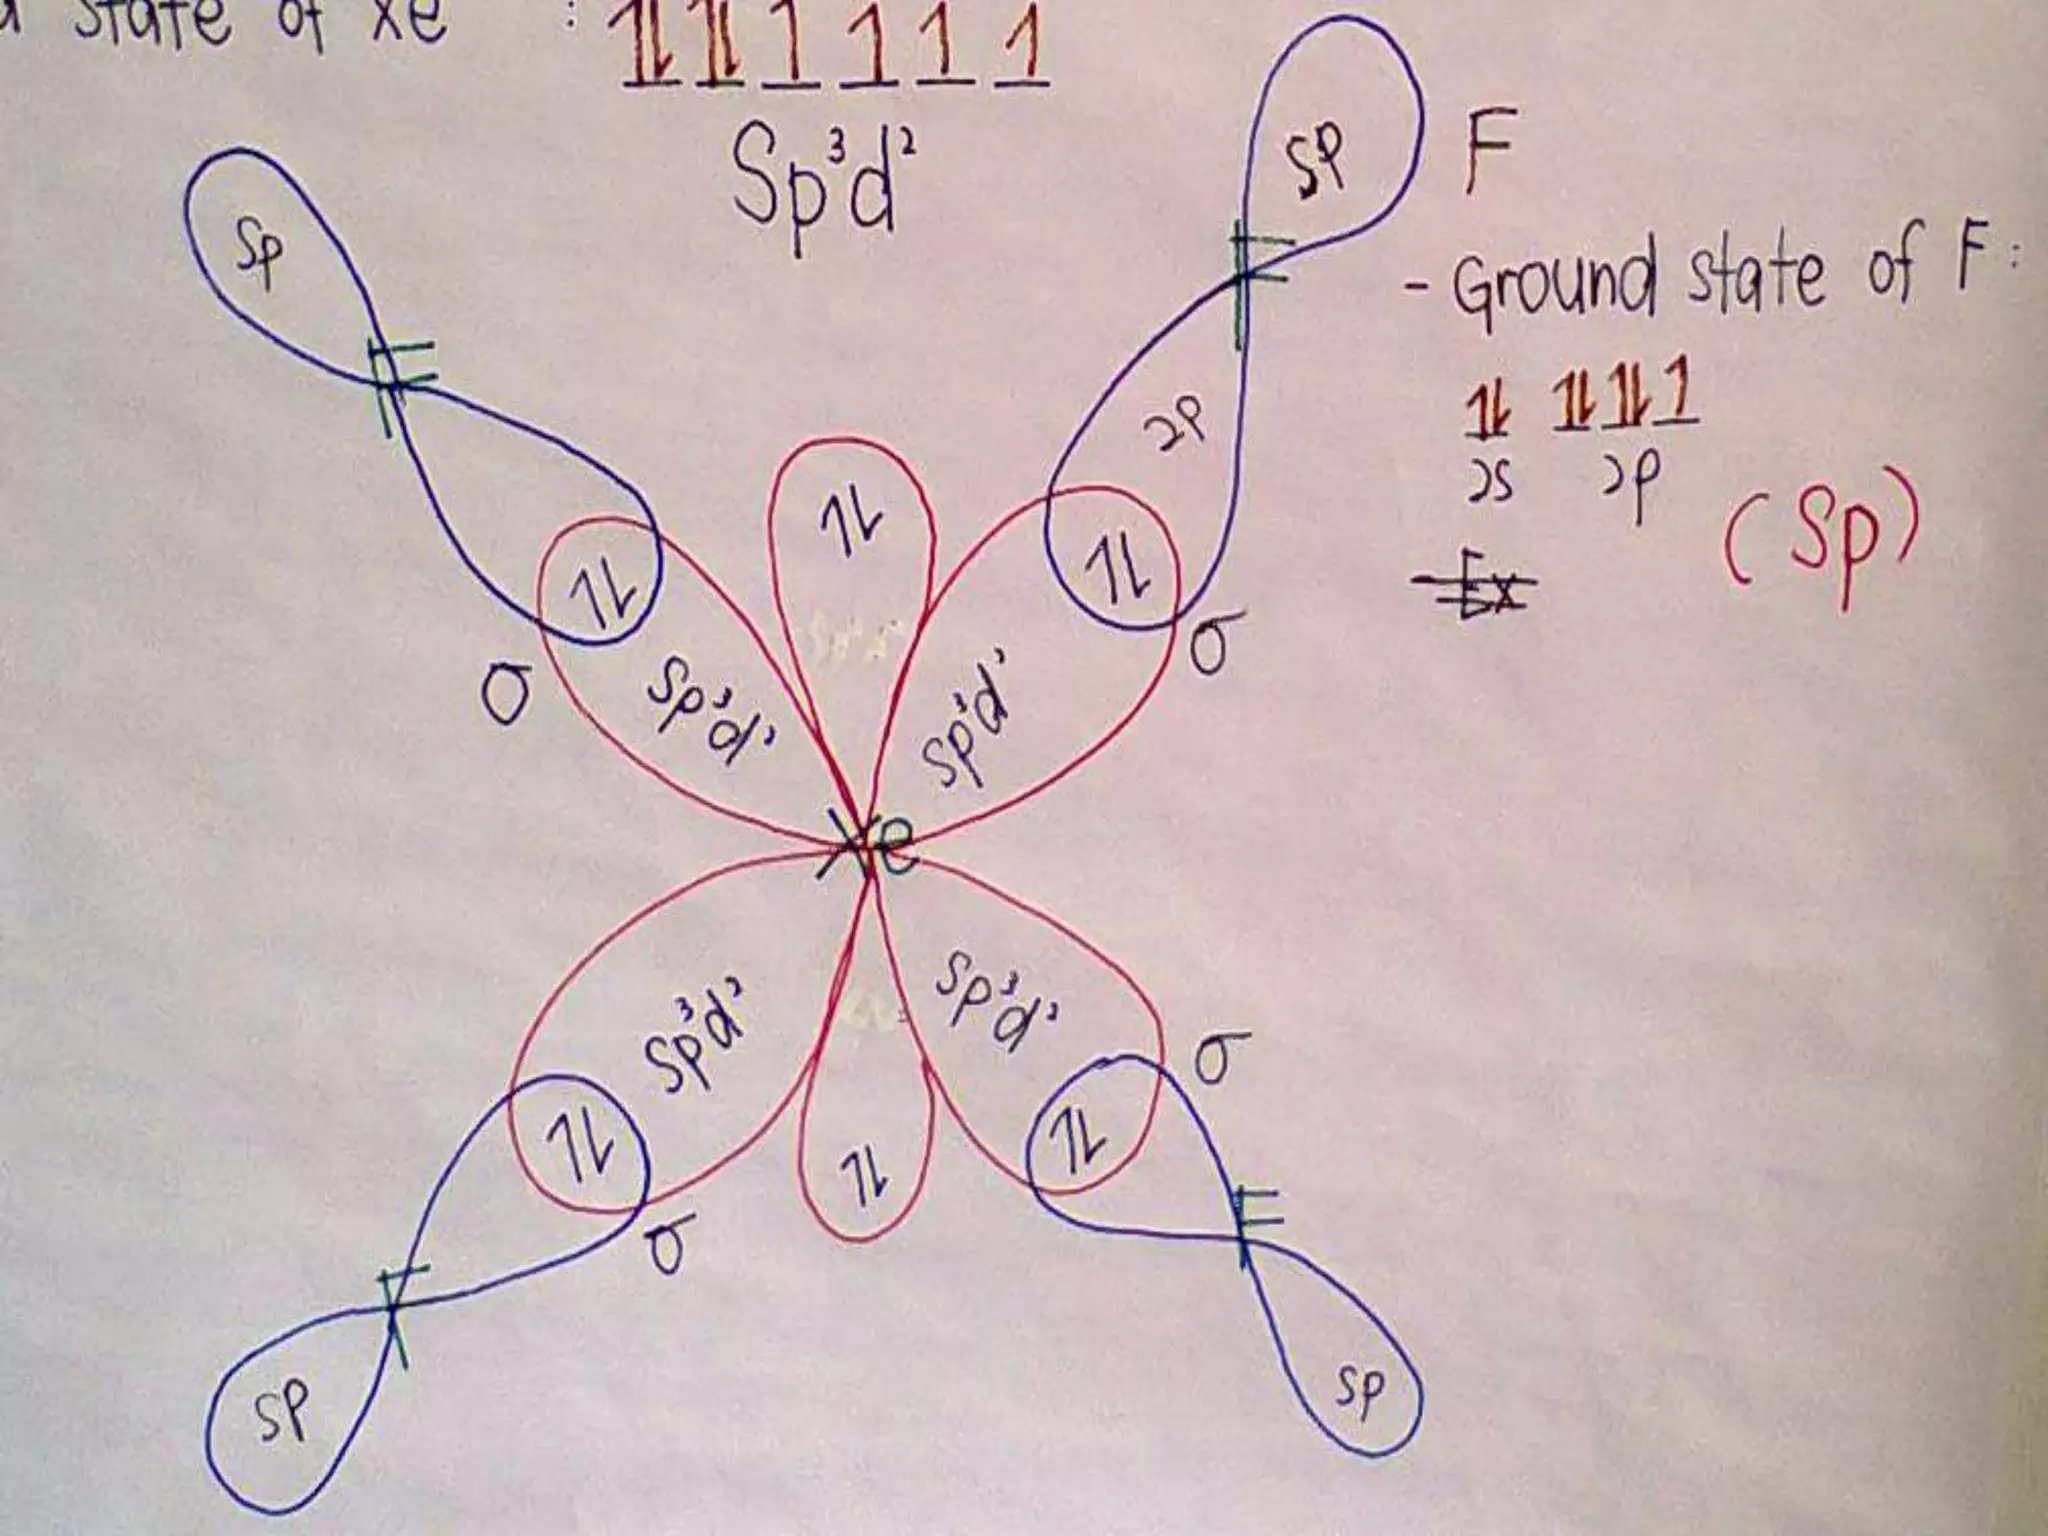 state of Xe :
Sp³d²
F
- Ground state of F:
2s 2p
(Sp)
Ex
Sp
SP
2P
σ
σ
Sp³d²
Sp³d²
Xe
F
F
Sp³d²
Sp³d²
σ
σ
F
F
SP
SP